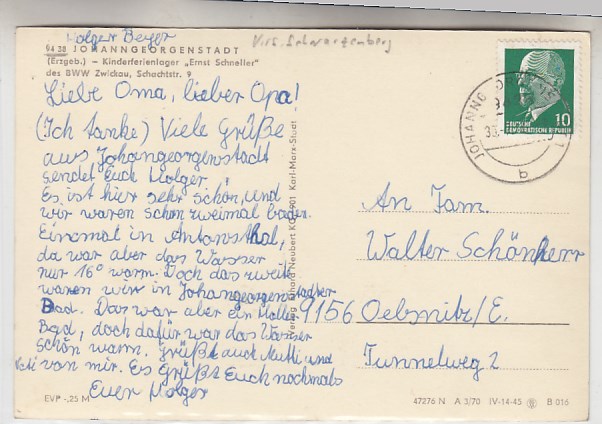 Holger Beyer
94 38 JOHANNGEORGENSTADT
(Erzgeb.) – Kinderferienlager „Ernst Schneller"
des BWW Zwickau, Schachtstr. 9
Liebe Oma, lieber Opa!
(Ich danke) Viele Grüße
aus Johangeorgenstadt
sendet Euch Holger.
Es ist hier sehr schön, und
wir waren schon zweimal baden.
Einmal in Antonsthal,
da war aber das Wasser
nur 16° warm. Doch das zweite
waren wir in Johangeorgenstädter
Bad. Das war aber ein Hallen
Bad, doch dafür war das Wasser
schön warm. Grüßt auch Mutti und
Vati von mir. Es Grüßt Euch nochmals
Euer Holger
EVP -,25 M
Verlag Erhard Neubert KG 901 Karl-Marx-Stadt
Schwarzenberg
DEUTSCHE
DEMOKRATISCHE REPUBLIK
10
b
An Fam.
Walter Schönherr
9156 Oelsnitz/E.
Tunnelweg 2
47276 N A 3/70 IV-14-45 B 016